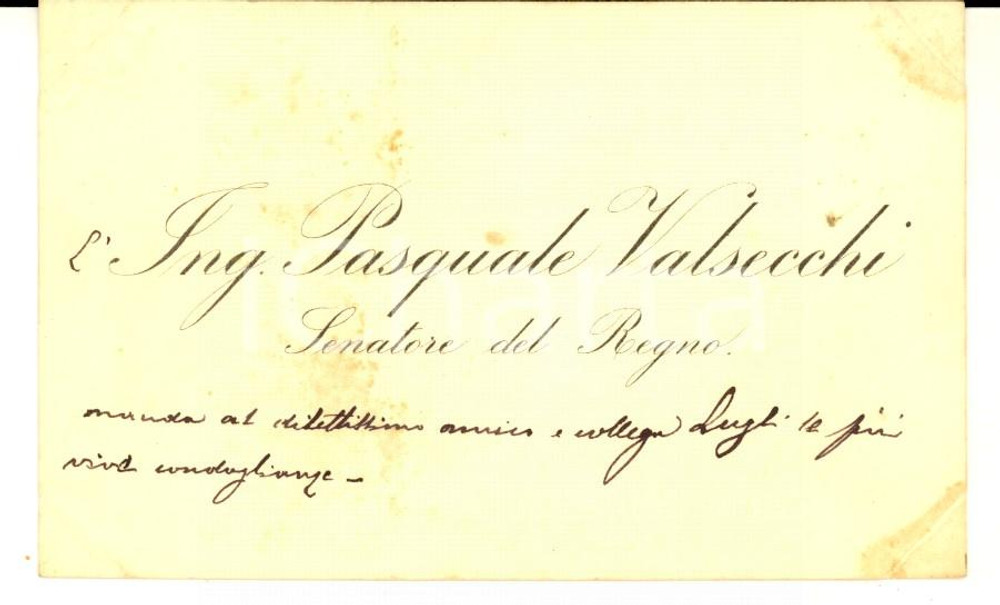 L' Ing. Pasquale Valsecchi
Senatore del Regno.
manda al dilettissimo amico e collega Lugli le più
vive condoglianze –